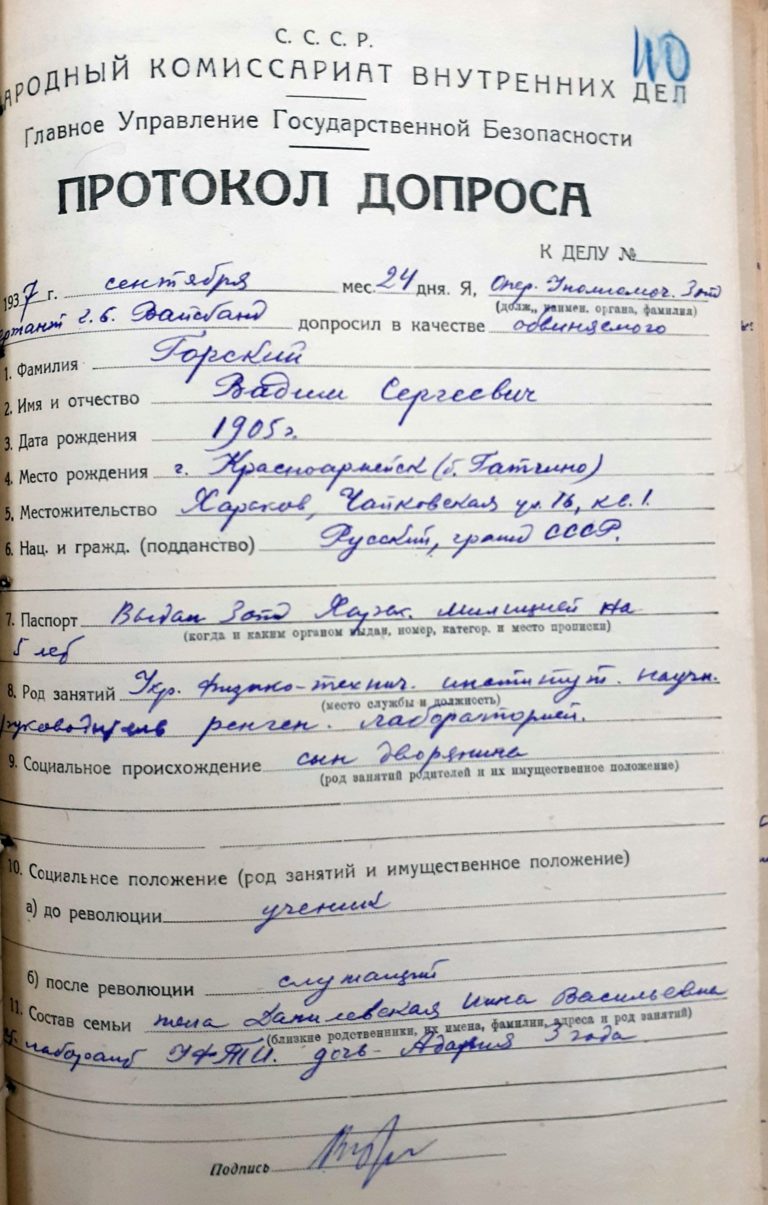 110
С. С. С. Р.
АРОДНЫЙ КОМИССАРИАТ ВНУТРЕННИХ ДЕЛ
Главное Управление Государственной Безопасности
ПРОТОКОЛ ДОПРОСА
К ДЕЛУ №
1937 г. сентября мес. 24 дня. Я, Опер. Уполномоч. 3 отд
(долж., наимен. органа, фамилия)
ержант г. б. Вайсбанд допросил в качестве обвиняемого
1. Фамилия Горский
2. Имя и отчество Вадим Сергеевич
3. Дата рождения 1905 г.
4. Место рождения г. Красноармейск (б. Гатчино)
5. Местожительство Харьков, Чайковская ул. 16, кв. 1.
6. Нац. и гражд. (подданство) Русский, гражд СССР.
7. Паспорт Выдан 3 отд Харьк. милицией на
(когда и каким органом выдан, номер, категор. и место прописки)
5 лет
8. Род занятий Укр. физико-технич. институт. научн.
(место службы и должность)
руководитель ренген. лабораторией.
9. Социальное происхождение сын дворянина
(род занятий родителей и их имущественное положение)
10. Социальное положение (род занятий и имущественное положение)
а) до революции ученик
б) после революции служащий
11. Состав семьи жена Данилевская Инна Васильевна
(близкие родственники, их имена, фамилии, адреса и род занятий)
лаборант УФТИ. дочь - 3 года
Подпись